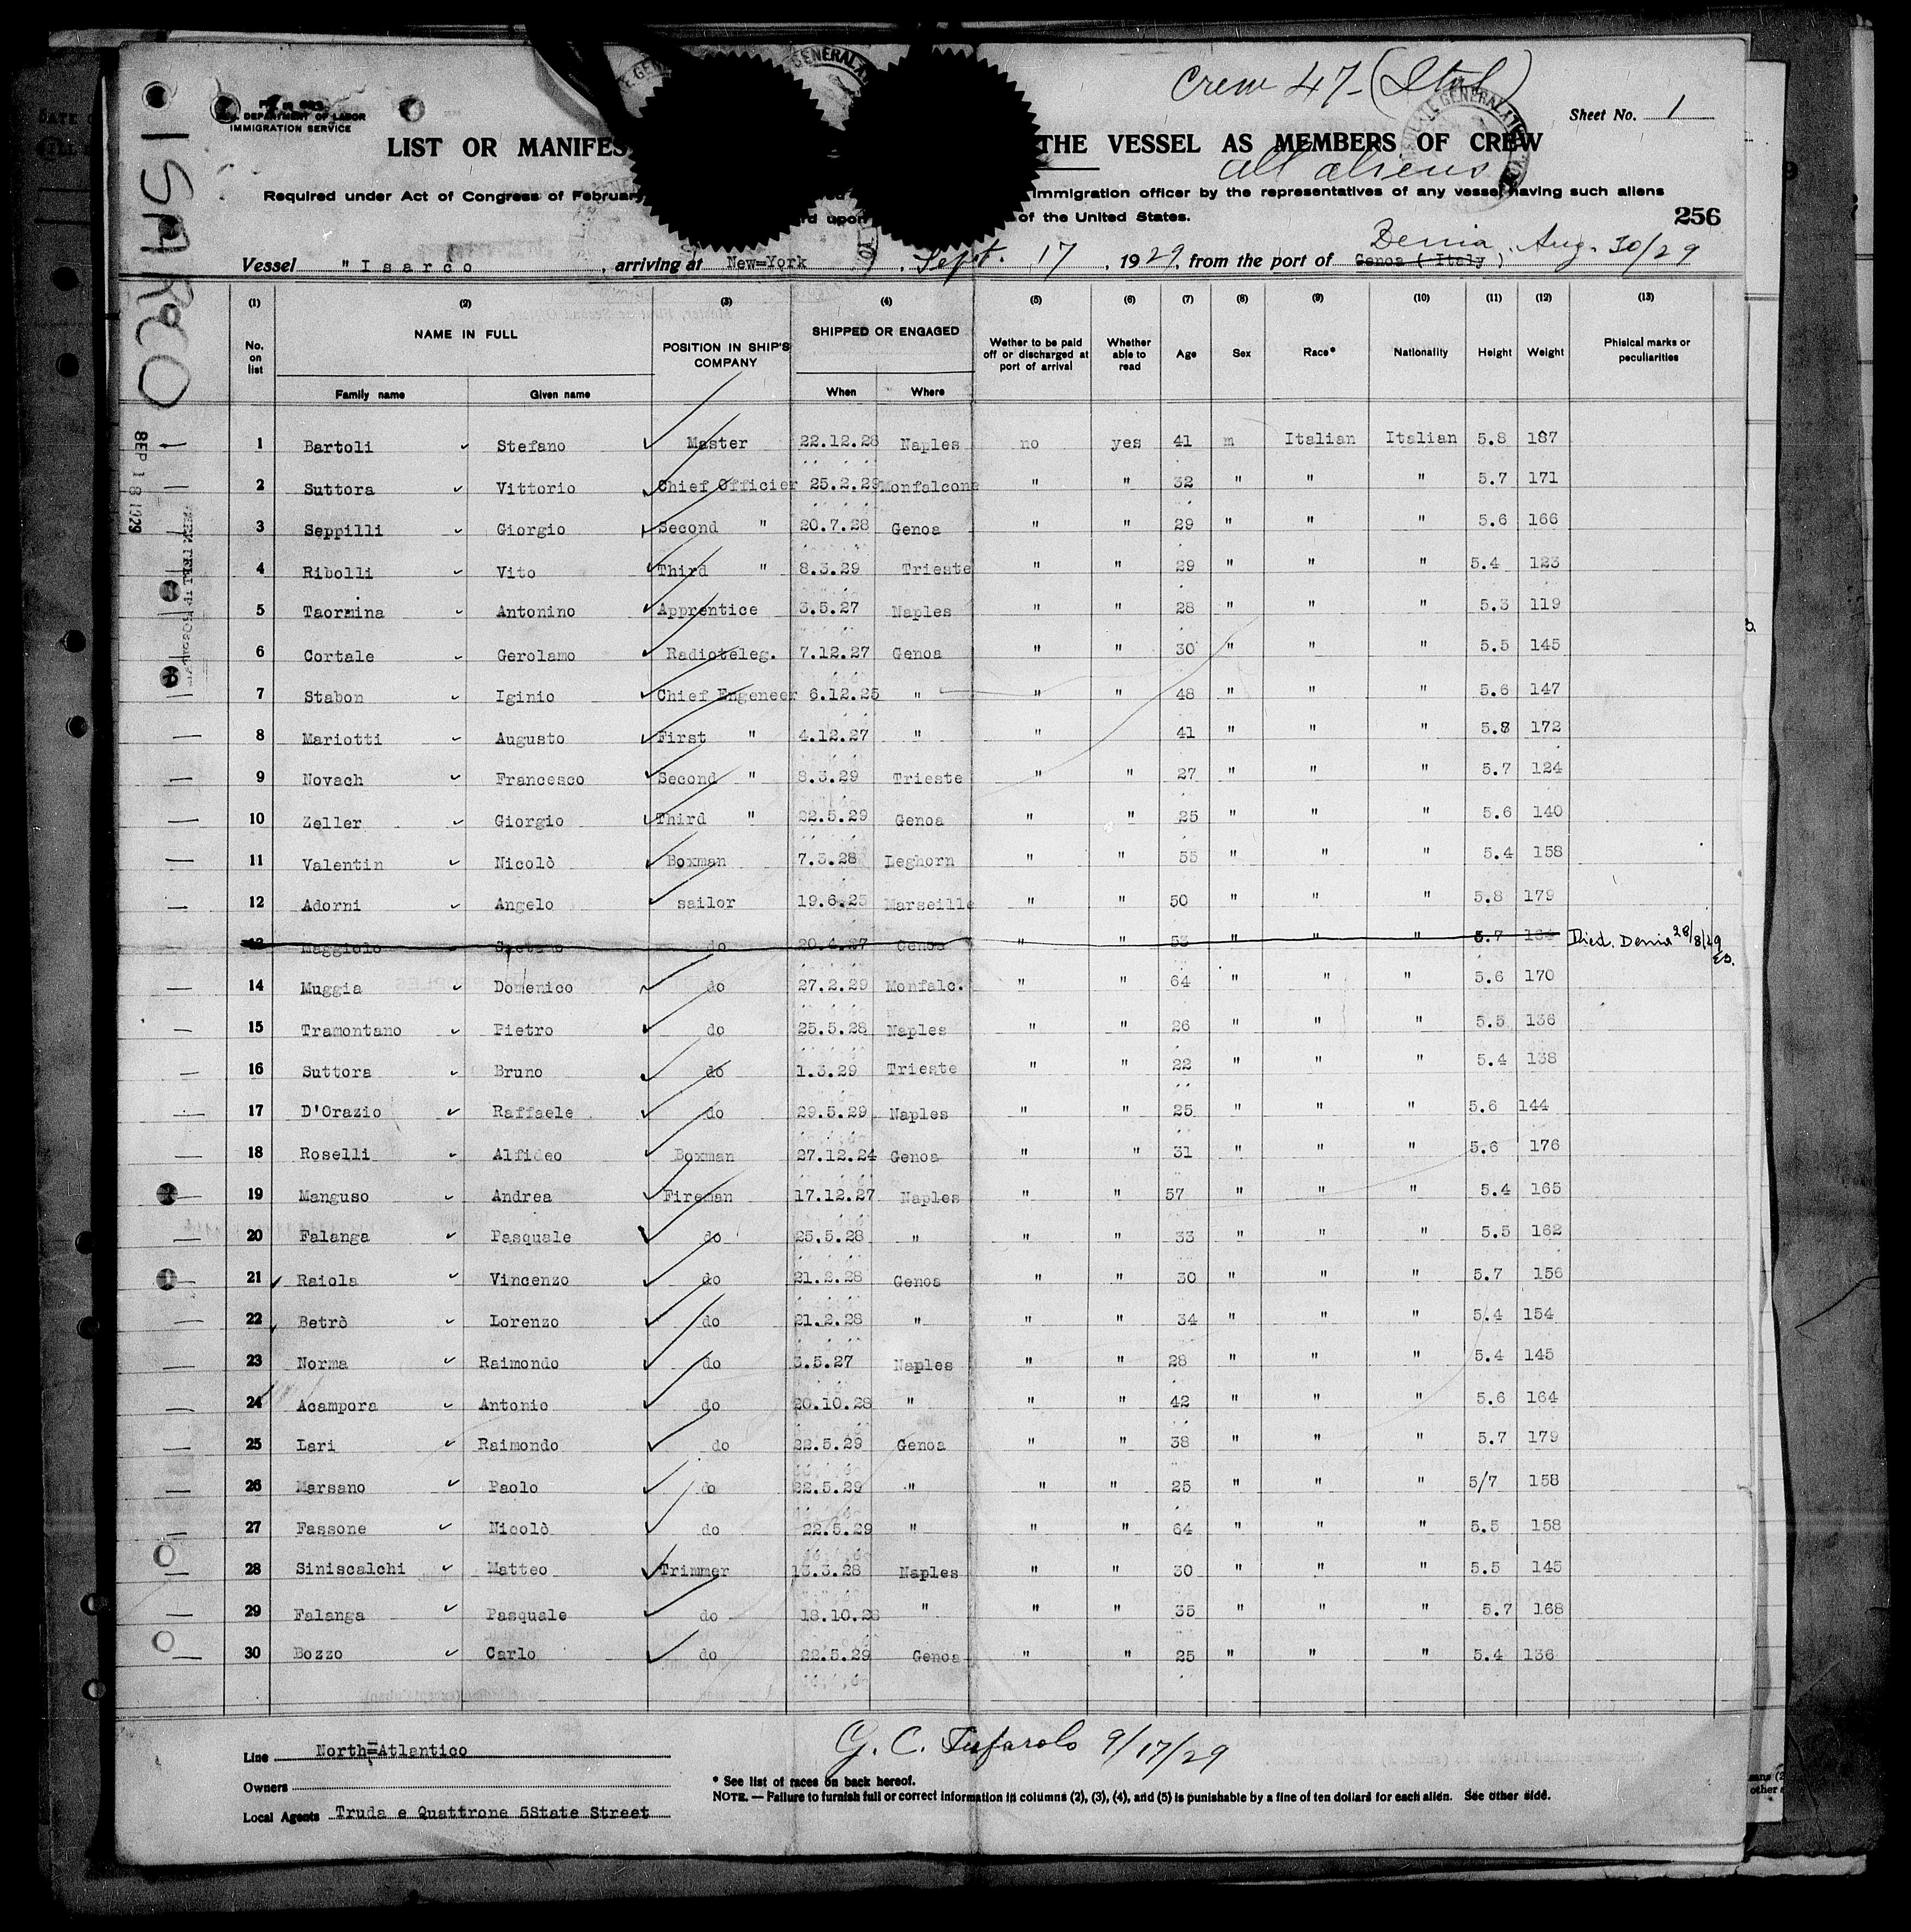 Crew 47 - (Ital)
Sheet No. 1
U.S. DEPARTMENT OF LABOR
IMMIGRATION SERVICE
LIST OR MANIFES THE VESSEL AS MEMBERS OF CREW
all aliens
Required under Act of Congress of February immigration officer by the representatives of any vessel having such aliens
rd upon of the United States.
256
ISARCO
SEP 18 1929
Denia, Aug. 30/29
Vessel "Isarco , arriving at New=York , Sept. 17 , 1929, from the port of Genoa (Italy)
(1) (2) (3) (4) (5) (6) (7) (8) (9) (10) (11) (12) (13)
No. on list NAME IN FULL POSITION IN SHIP'S COMPANY SHIPPED OR ENGAGED Wether to be paid off or discharged at port of arrival Whether able to read Age Sex Race* Nationality Height Weight Phisical marks or peculiarities
Family name Given name When Where
1 Bartoli Stefano Master 22.12.28 Naples no yes 41 m Italian Italian 5.8 187
2 Suttora Vittorio Chief Officier 25.2.29 Monfalcone " " 32 " " " 5.7 171
3 Seppilli Giorgio Second " 20.7.28 Genoa " " 29 " " " 5.6 166
4 Ribolli Vito Third " 8.3.29 Trieste " " 29 " " " 5.4 123
5 Taormina Antonino Apprentice 3.5.27 Naples " " 28 " " " 5.3 119
6 Cortale Gerolamo Radioteleg. 7.12.27 Genoa " " 30 " " " 5.5 145
7 Stabon Iginio Chief Engeneer 6.12.25 " " " 48 " " " 5.6 147
8 Mariotti Augusto First " 4.12.27 " " 41 " " " 5.8 172
9 Novach Francesco Second " 8.3.29 Trieste " " 27 " " " 5.7 124
10 Zeller Giorgio Third " 22.5.29 Genoa " " 25 " " " 5.6 140
11 Valentin Nicolò Boxman 7.3.28 Leghorn " " 55 " " " 5.4 158
12 Adorni Angelo sailor 19.6.25 Marseille " " 50 " " " 5.8 179
13 Maggiolo Gaetano do 20.4.27 Genoa " " 53 " " " 5.7 164 Died. Denia 28/8/29
14 Muggia Domenico do 27.2.29 Monfalc. " " 64 " " " 5.6 170
15 Tramontano Pietro do 25.5.28 Naples " " 26 " " " 5.5 136
16 Suttora Bruno do 1.3.29 Trieste " " 22 " " " 5.4 138
17 D'Orazio Raffaele do 29.5.29 Naples " " 25 " " " 5.6 144
18 Roselli Alfideo Boxman 27.12.24 Genoa " " 31 " " " 5.6 176
19 Manguso Andrea Fireman 17.12.27 Naples " " 57 " " " 5.4 165
20 Falanga Pasquale do 25.5.28 " " " 33 " " " 5.5 162
21 Raiola Vincenzo do 21.2.28 Genoa " " 30 " " " 5.7 156
22 Betrò Lorenzo do 21.2.28 " " " 34 " " " 5.4 154
23 Norma Raimondo do 3.5.27 Naples " " 28 " " " 5.4 145
24 Acampora Antonio do 20.10.28 " " " 42 " " " 5.6 164
25 Lari Raimondo do 22.5.29 Genoa " " 38 " " " 5.7 179
26 Marsano Paolo do 22.5.29 " " " 25 " " " 5/7 158
27 Fassone Nicolò do 22.5.29 " " " 64 " " " 5.5 158
28 Siniscalchi Matteo Trimmer 13.3.28 Naples " " 30 " " " 5.5 145
29 Falanga Pasquale do 18.10.28 " " " 35 " " " 5.7 168
30 Bozzo Carlo do 22.5.29 Genoa " " 25 " " " 5.4 136
Line North=Atlantico
G. C. Tufarolo 9/17/29
Owners
* See list of races on back hereof.
NOTE. — Failure to furnish full or correct information in columns (2), (3), (4), and (5) is punishable by a fine of ten dollars for each alien. See other side.
Local Agents Truda e Quattrone 5State Street